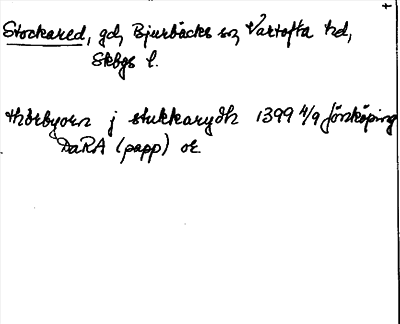 +
Stockared, gd, Bjurbäcks sn, Vartofta hd,
Skbgs l.
thorbyorn j stukkarydh 1399 4/9 Jönköping
DaRA (papp) or